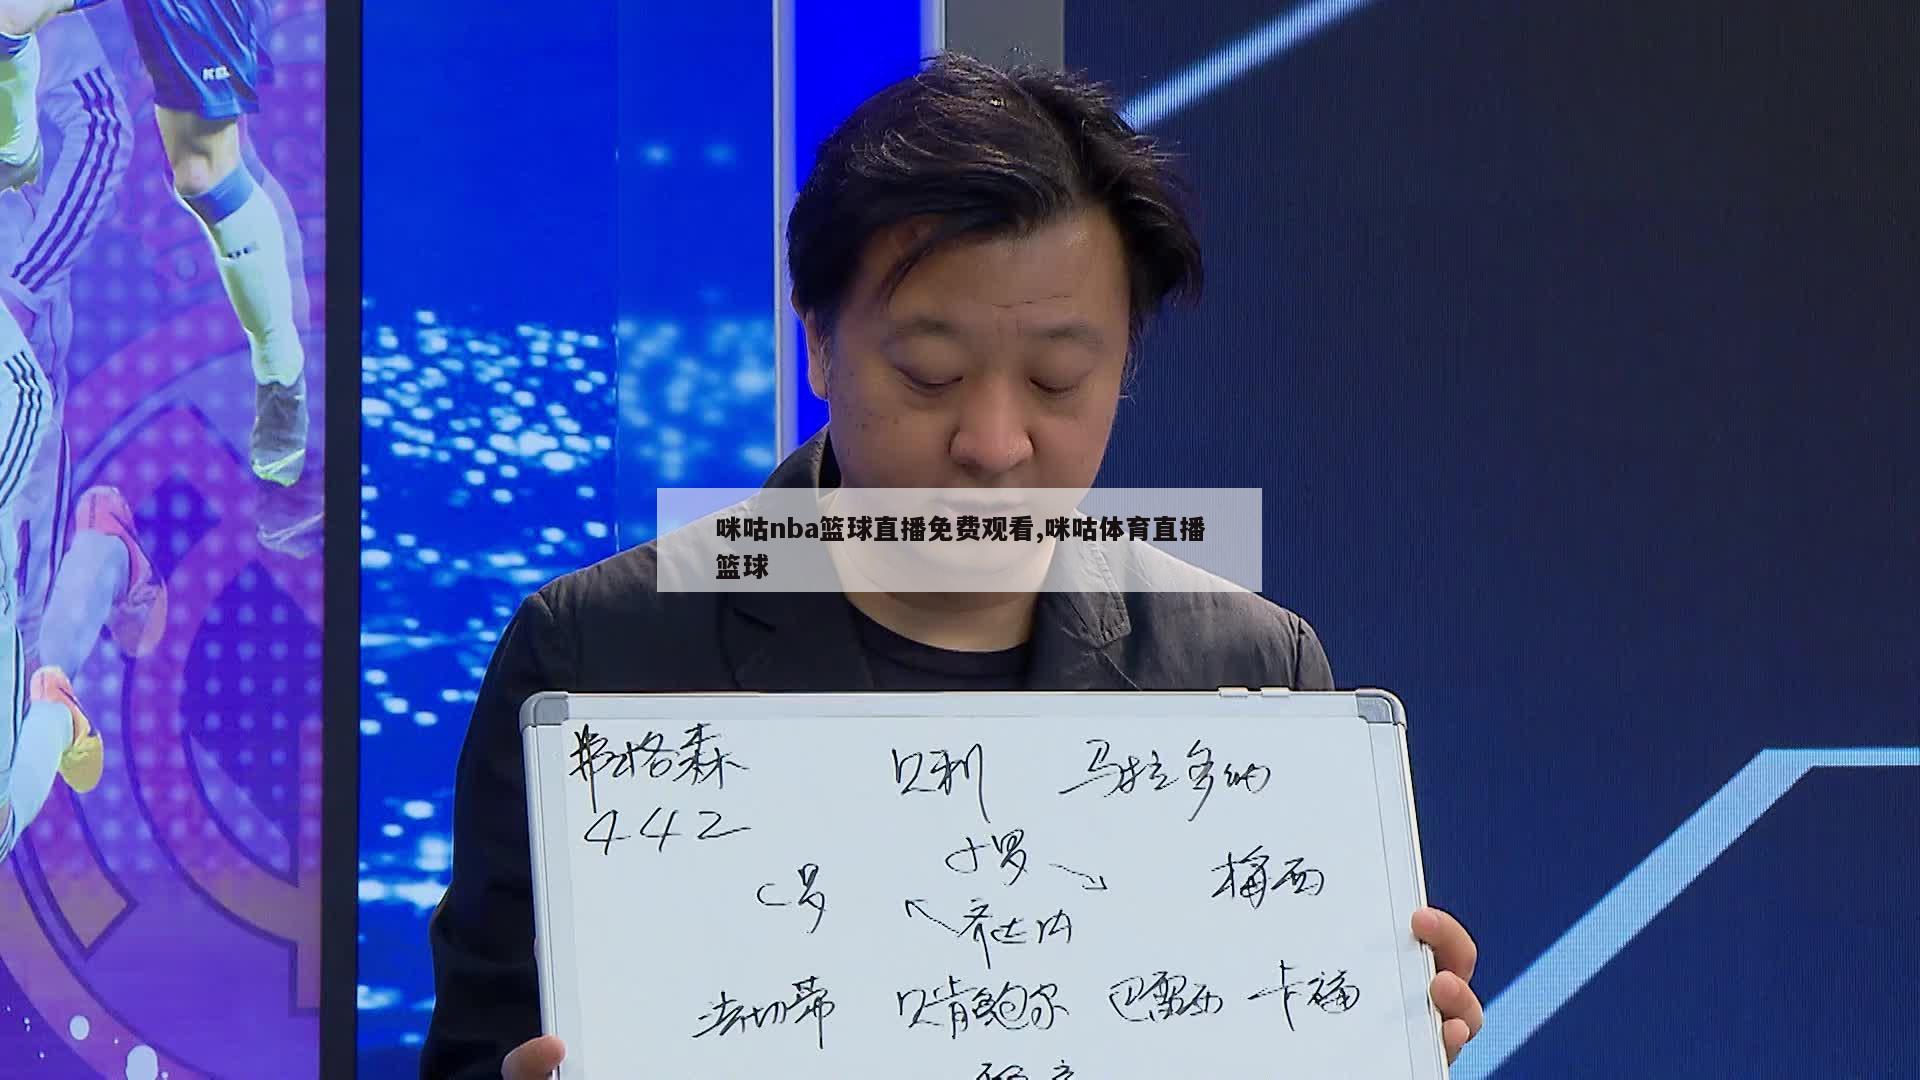 咪咕nba篮球直播免费观看,咪咕体育直播
篮球
弗格森 贝利 马拉多纳
442
小罗
C罗 梅西
齐达内
法切蒂 贝肯鲍尔 巴雷西 卡福